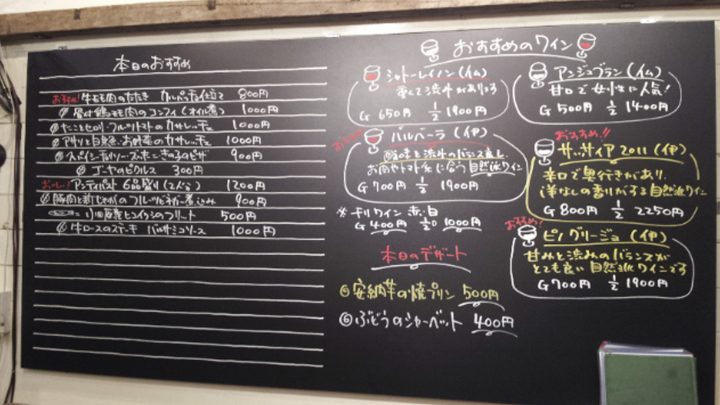 本日のおすすめ
牛もも肉のたたき カルパッチョ仕立て 800円
骨付鶏もも肉のコンフィ(オイル煮) 1000円
フルーツトマトのカサレッチェ 1000円
アサリと自然 お野菜のカサレッチェ 1000円
スパイシーチョリソーときのこのピザ 900円
ゴーヤのピクルス 300円
アンティパスト 6品盛り(2人〜) 1200円
豚肉と のフルーツビネガー煮込み 900円
のフリット 500円
牛ロースのステーキ バルサミコソース 1000円
おすすめのワイン
シャトーレイソン(仏)
渋みがあります
G 650円 1/2 1900円
バルベーラ(伊)
酸味と渋みのバランス良し
お肉やトマト に合う自然派ワイン
G 700円 1/2 1900円
※チリワイン 赤・白
G 400円 1/2 1000円
本日のデザート
安納芋の焼プリン 500円
ぶどうのシャーベット 400円
アンジュブラン(仏)
甘口で女性に人気!
G 500円 1/2 1400円
おすすめ!!
サッサイア 2011(伊)
辛口で奥行きがあり、
洋なしの香りがする自然派ワイン
G 800円 1/2 2250円
おすすめ!
ピノグリージョ(伊)
甘みと渋みのバランスが
とても良い自然派ワインです
G 700円 1/2 1900円